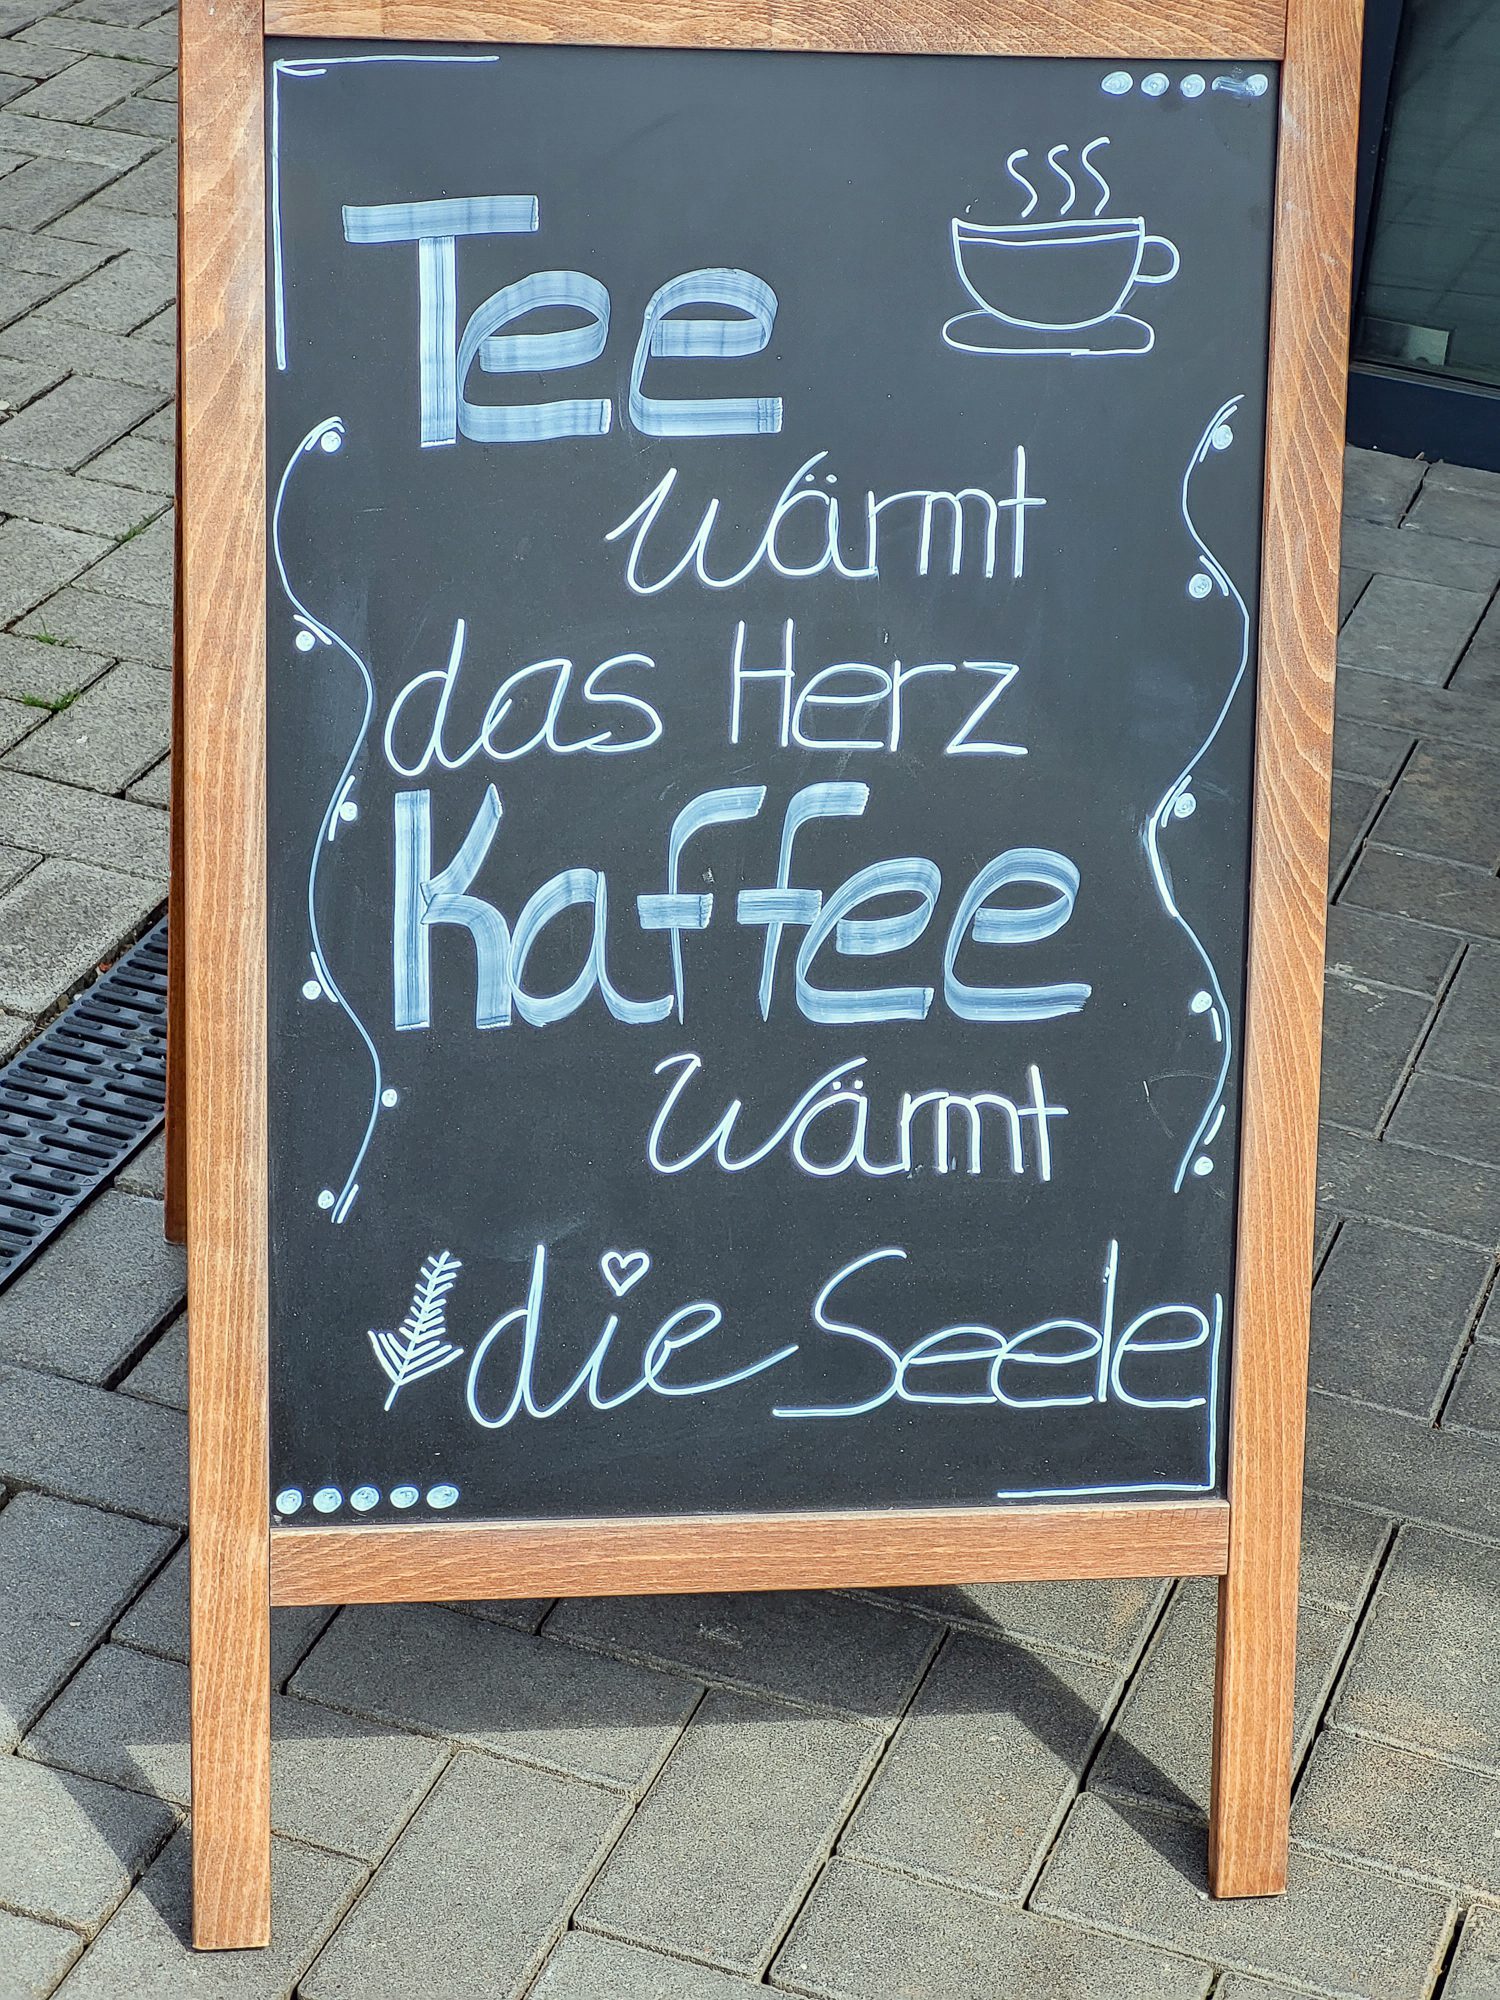 Tee
wärmt
das Herz
Kaffee
wärmt
die Seele